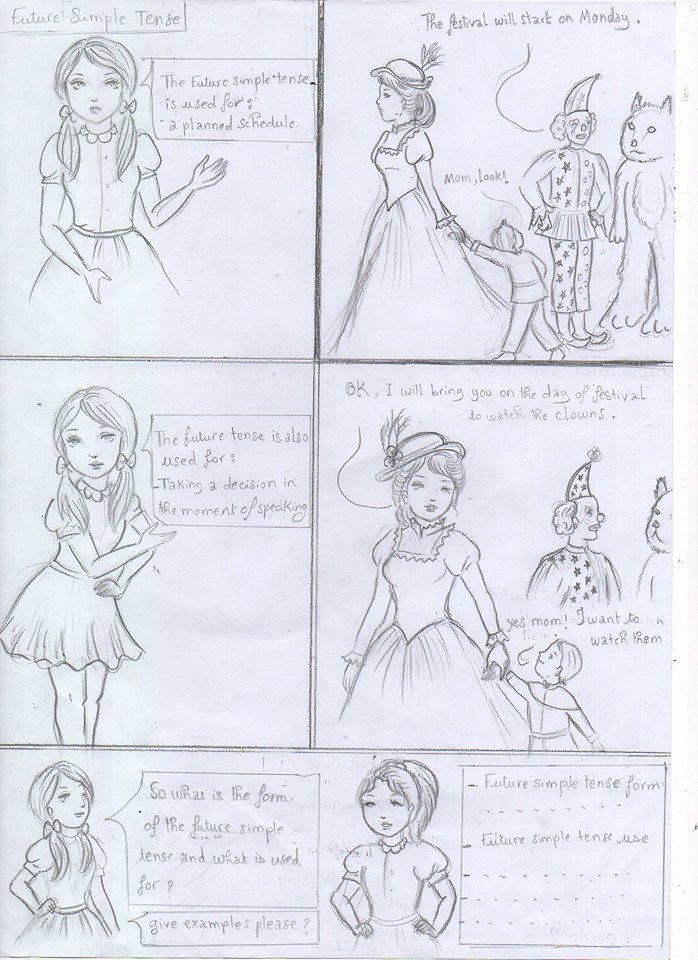 Future Simple Tense
The Future simple tense
is used for:
- a planned schedule.
The festival will start on Monday.
Mom, look!
The future tense is also
used for:
-Taking a decision in
the moment of speaking
OK, I will bring you on the day of festival
to watch the clowns.
yes mom! I want to
watch them
So what is the form
of the future simple
tense and what is used
for?
give examples please?
- Future simple tense form
Future simple tense use